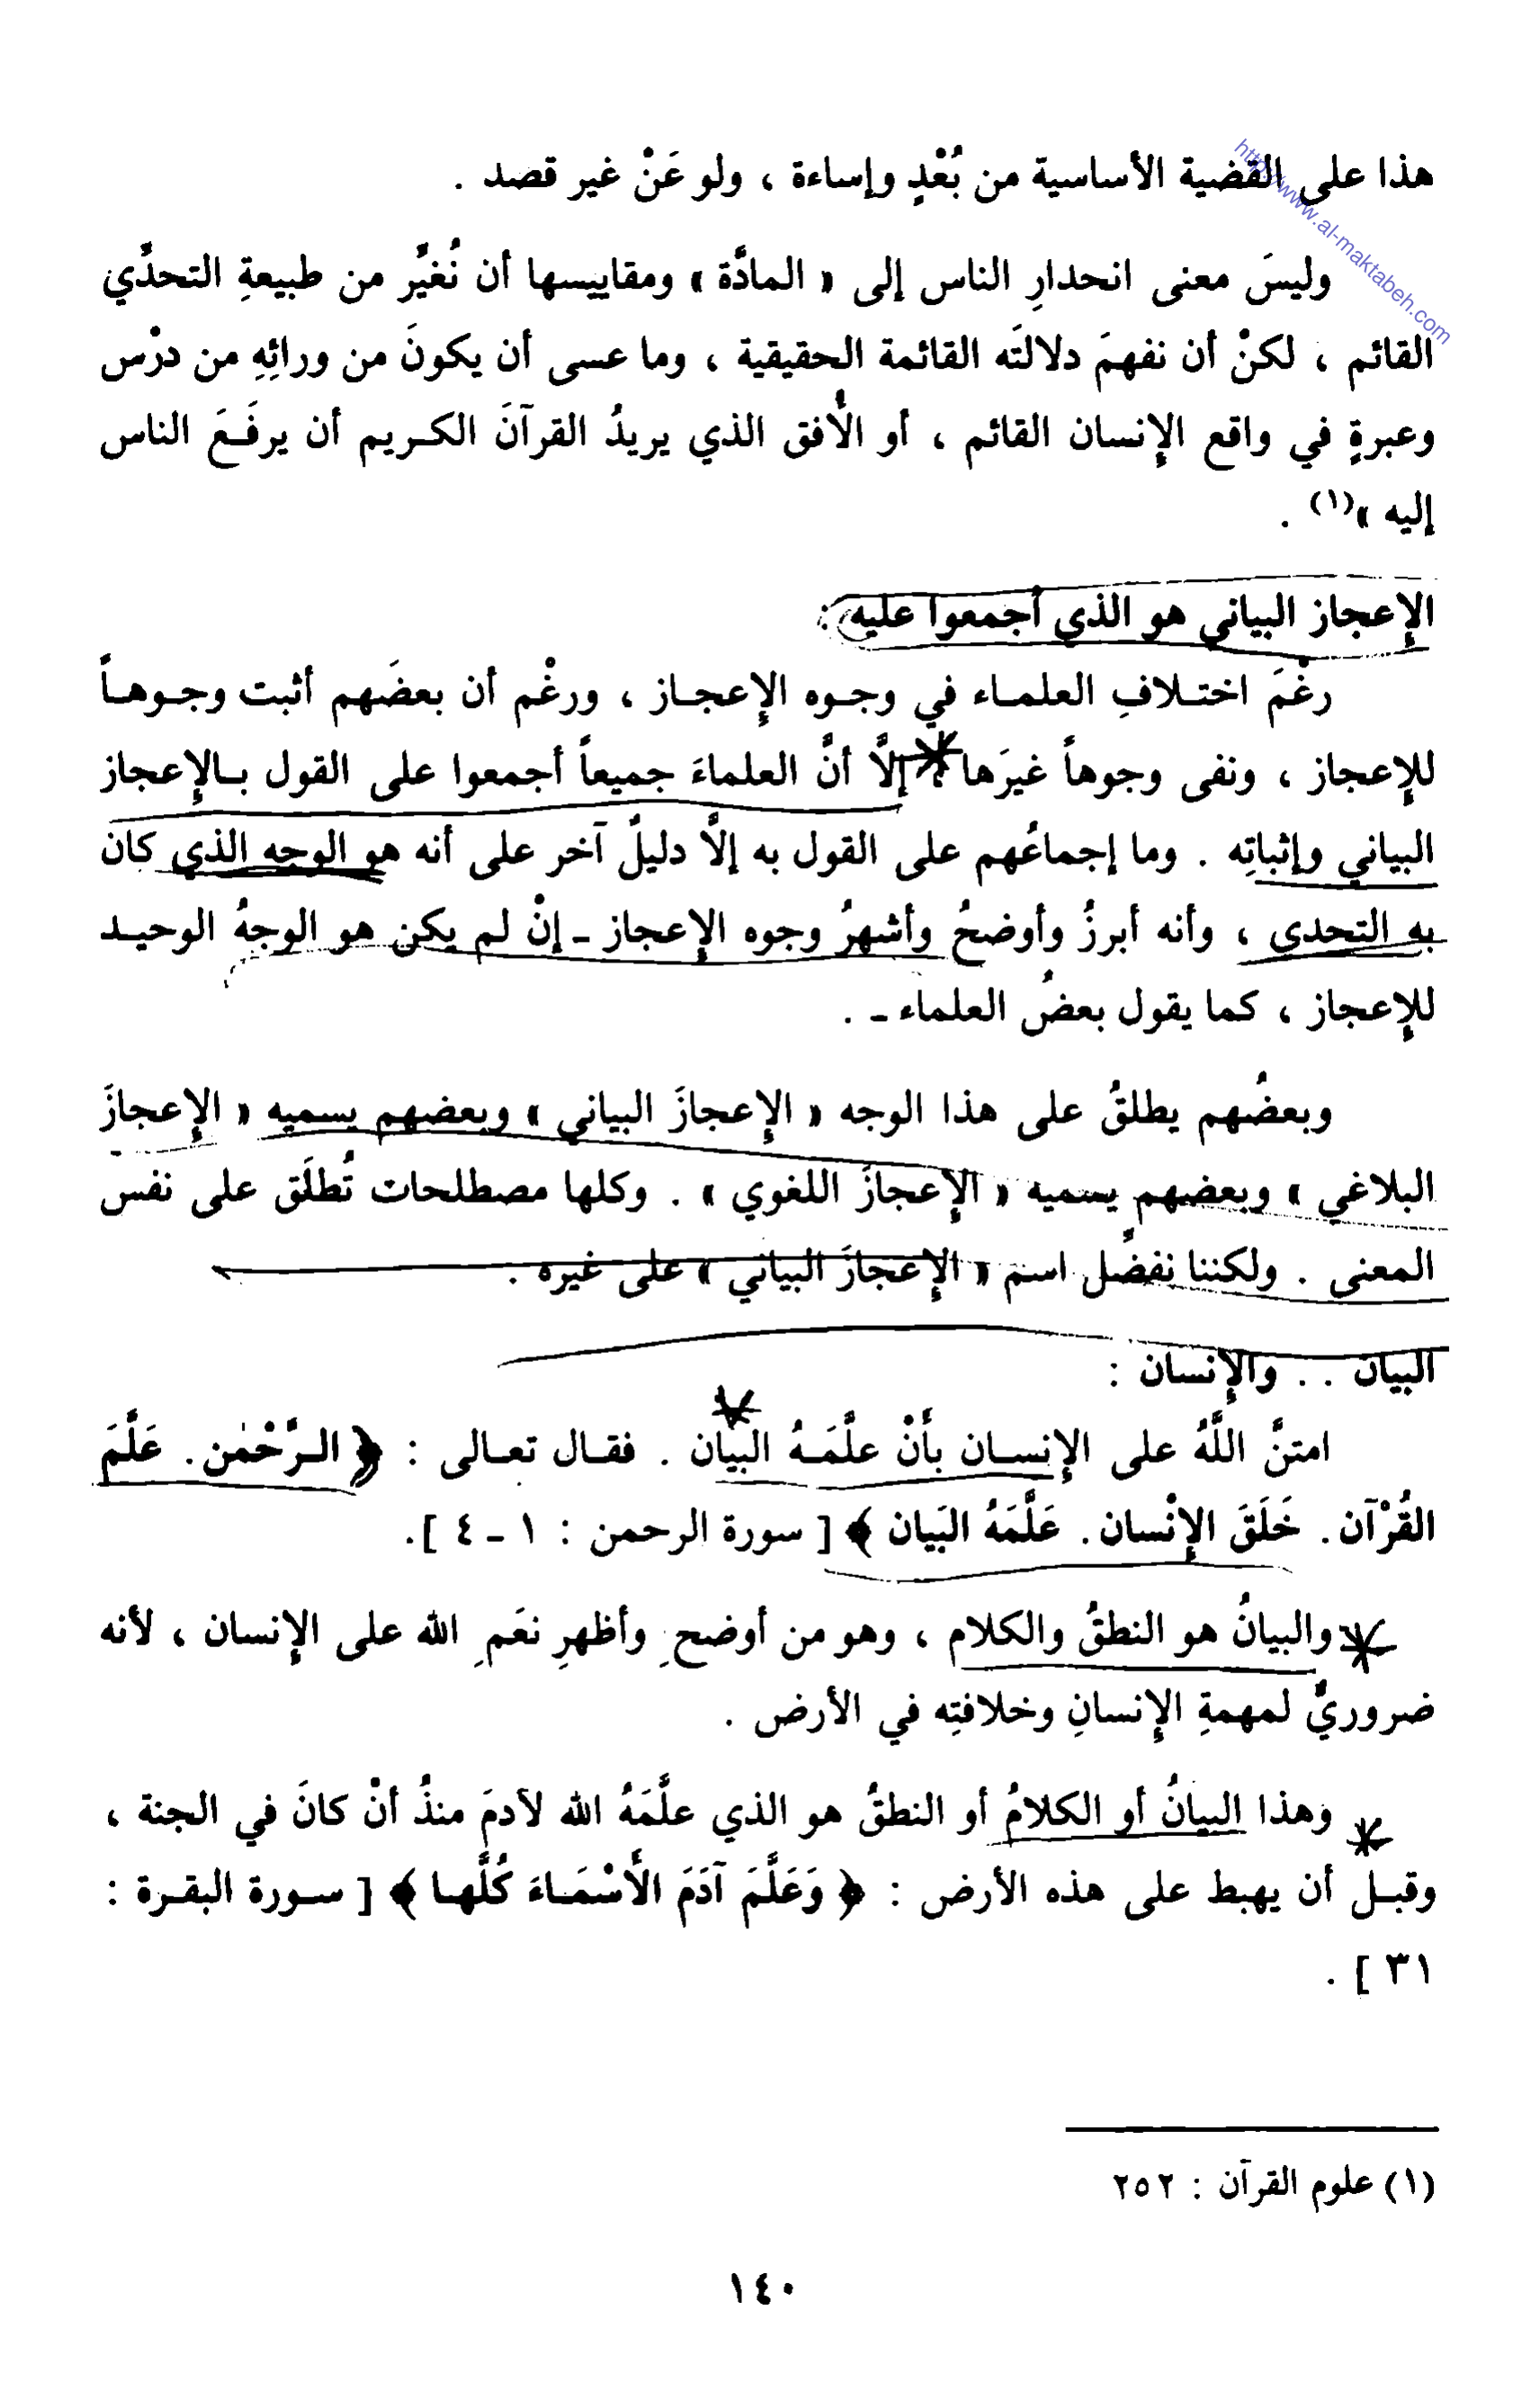 http://www.al-maktabeh.com
هذا على القضية الأساسية من بُعْدٍ وإساءة ، ولو عَنْ غير قصد .
وليسَ معنى انحدارِ الناس إلى « المادَّة » ومقاييسها أن نُغيِّر من طبيعةِ التحدِّي
القائم ، لكنْ أن نفهمَ دلالتَه القائمة الحقيقية ، وما عسى أن يكونَ من ورائِهِ من درْس
وعبرةٍ في واقع الإنسان القائم ، أو الأُفق الذي يريدُ القرآنَ الكـريم أن يرفَـعَ الناس
إليه »(١) .
الإعجاز البياني هو الذي أجمعوا عليه :
رغْمَ اختـلافِ العلمـاء في وجـوه الإعجـاز ، ورغْم أن بعضَهم أثبت وجـوهـاً
للإعجاز ، ونفى وجوهاً غيرَها ، إلَّا أنَّ العلماءَ جميعاً أجمعوا على القول بـالإعجاز
البياني وإثباتِه . وما إجماعُهم على القول به إلَّا دليلٌ آخر على أنه هو الوجه الذي كان
به التحدي ، وأنه أبرزُ وأوضحُ وأشهرُ وجوه الإعجاز ـ إنْ لم يكن هو الوجهُ الوحيـد
للإعجاز ، كما يقول بعضُ العلماء ـ .
وبعضُهم يطلقُ على هذا الوجه « الإعجازَ البياني » وبعضهم يسميه « الإعجازَ
البلاغي » وبعضهم يسميه « الإعجازَ اللغوي » . وكلها مصطلحات تُطلَق على نفس
المعنى . ولكننا نفضِّل اسم « الإعجازَ البياني » على غيره .
البيان . . والإنسان :
امتنَّ اللَّهُ على الإنسـان بأَنْ علَّمَـهُ البيان . فقـال تعـالى : ﴿ الـرَّحْمٰن. عَلَّمَ
القُرْآن. خَلَقَ الإنْسان. عَلَّمَهُ البَيان ﴾ [ سورة الرحمن : ١ ـ ٤ ].
والبيانُ هو النطقُ والكلام ، وهو من أوضحِ وأظهرِ نعَمِ الله على الإنسان ، لأنه
ضروريٌّ لمهمةِ الإنسانِ وخلافتِه في الأرض .
وهذا البيانُ أو الكلامُ أو النطقُ هو الذي علَّمَهُ الله لآدمَ منذُ أنْ كانَ في الجنة ،
وقبـل أن يهبط على هذه الأرض : ﴿ وَعَلَّمَ آدَمَ الأَسْمَـاءَ كُلَّهـا ﴾ [ سـورة البقـرة :
٣١ ] .
(١) علوم القرآن : ٢٥٢
١٤٠